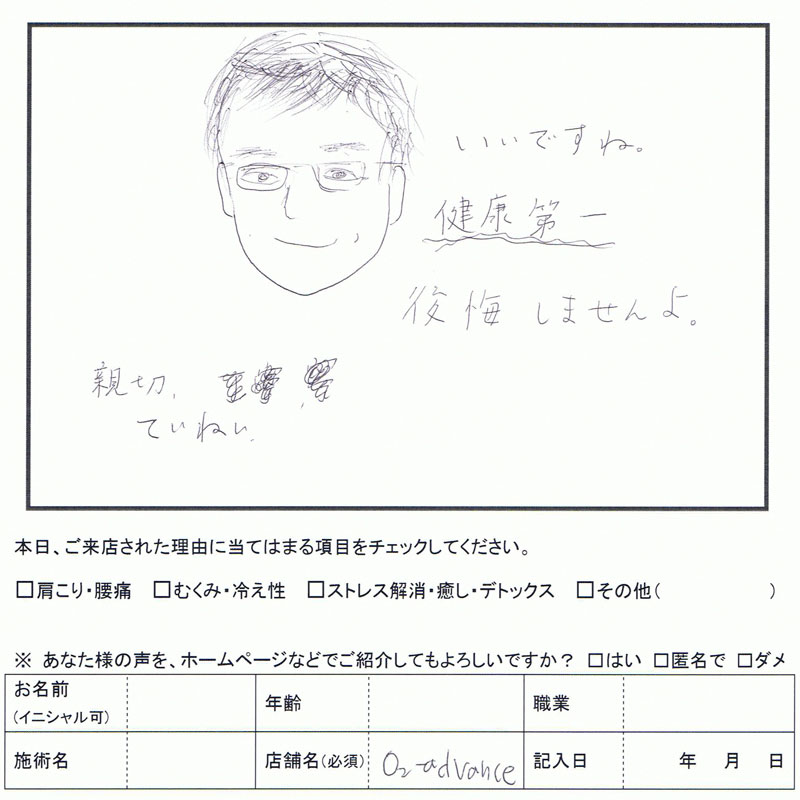 いいですね。
健康第一
後悔しませんよ。
親切、
ていねい、
本日、ご来店された理由に当てはまる項目をチェックしてください。
□肩こり・腰痛 □むくみ・冷え性 □ストレス解消・癒し・デトックス □その他( )
※ あなた様の声を、ホームページなどでご紹介してもよろしいですか？ □はい □匿名で □ダメ
お名前
(イニシャル可)
年齢
職業
施術名
店舗名(必須)
O2-advance
記入日
年 月 日